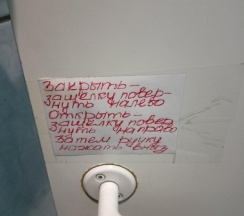 Закрыть –
защелку повер-
нуть налево
Открыть –
защелку повер
нуть направо
Затем ручку
нажать вниз